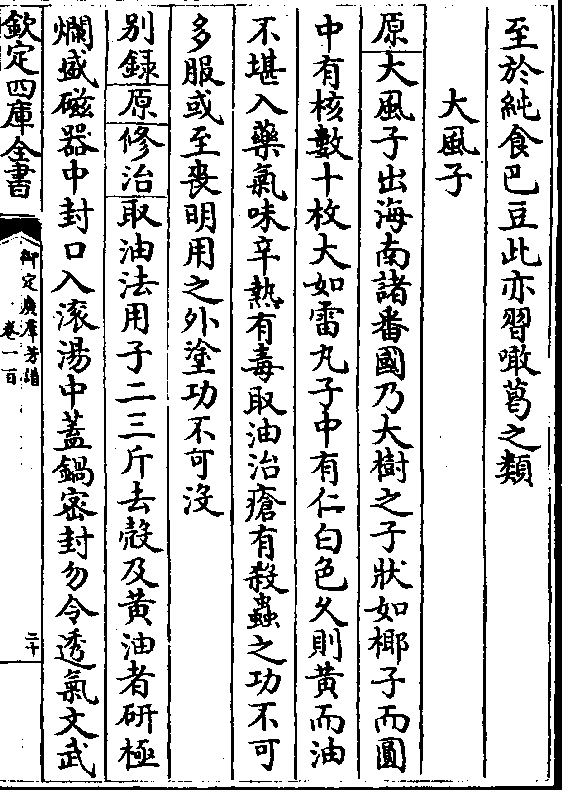 至於純食巴豆此亦習噉葛之類
大風子
原大風子出海南諸番國乃大樹之子狀如椰子而圓
中有核數十枚大如雷丸子中有仁白色久則黃而油
不堪入藥氣味辛熱有毒取油治瘡有殺蟲之功不可
多服或至喪明用之外塗功不可沒
別録原修治取油法用子二三斤去殼及黃油者研極
爛盛磁器中封口入滾湯中蓋鍋密封勿令透氣文武
欽定四庫全書
御定廣羣芳譜
卷一百
二十